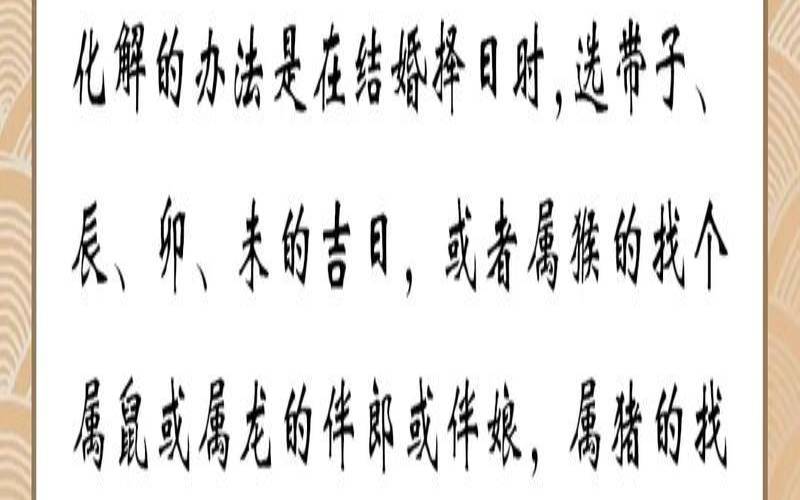 化解的办法是在结婚择日时,选带子、
辰、卯、未的吉日，或者属猴的找个
属鼠或属龙的伴郎或伴娘，属猪的找